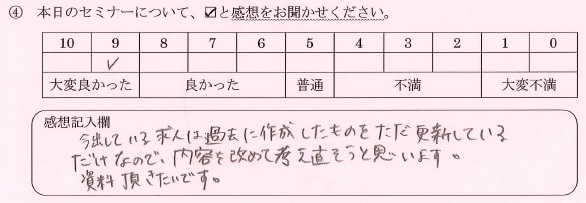 ④ 本日のセミナーについて、☑と感想をお聞かせください。
10 9 8 7 6 5 4 3 2 1 0
✓
大変良かった 良かった 普通 不満 大変不満
感想記入欄
今出している求人は過去に作成したものをただ更新している
だけなので、内容を改めて考え直そうと思います。
資料頂きたいです。